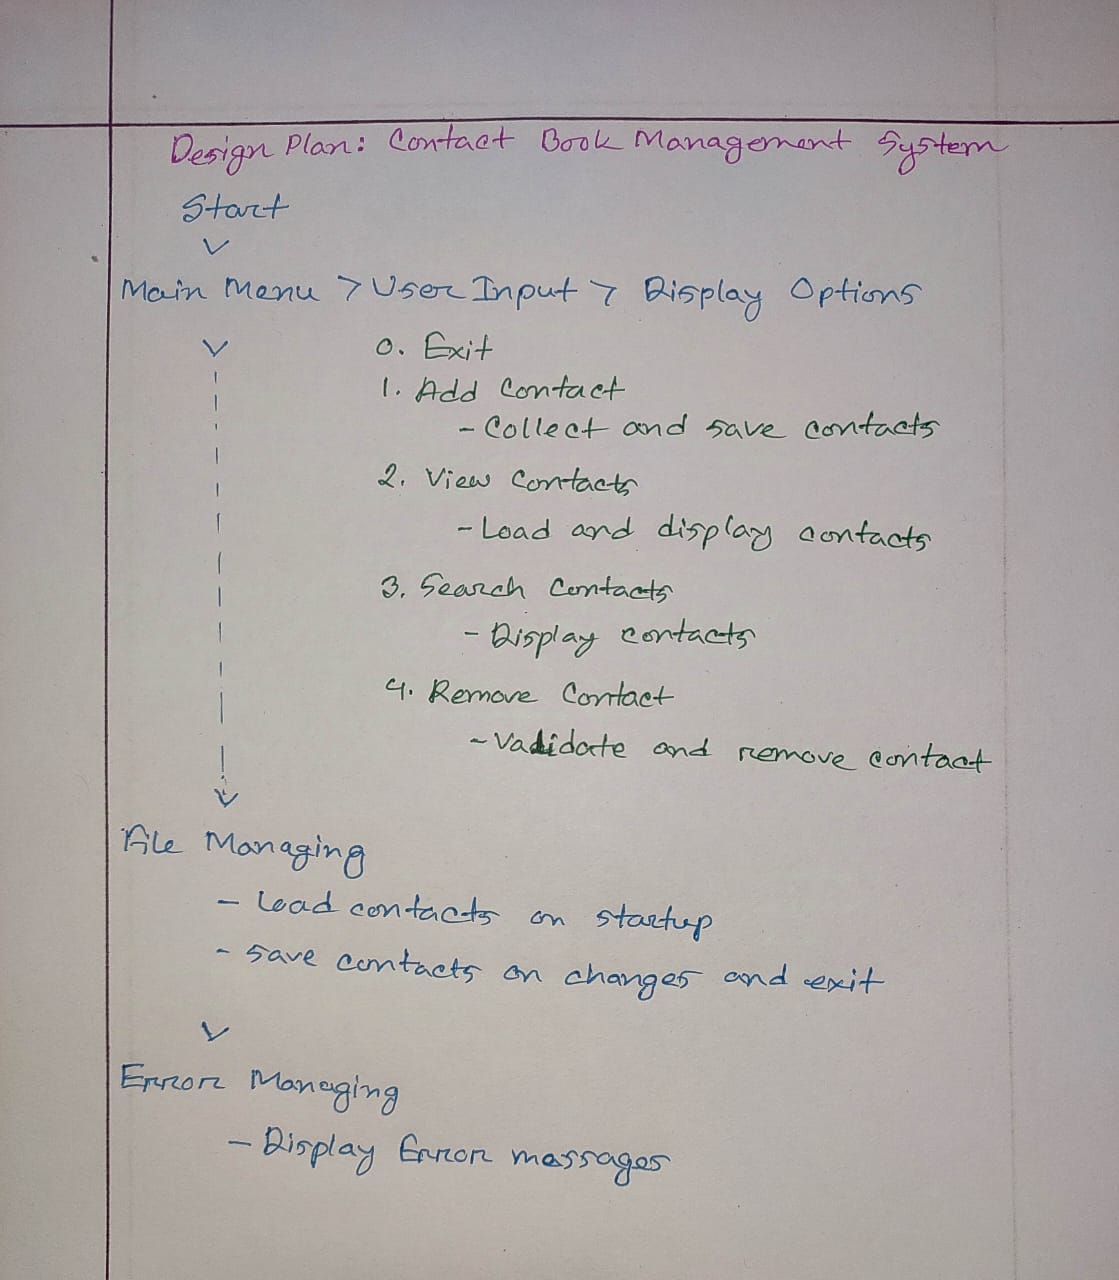 Design Plan: Contact Book Management System
Start
Main Menu > User Input > Display Options
0. Exit
1. Add Contact
- Collect and save contacts
2. View Contacts
- Load and display contacts
3. Search Contacts
- Display contacts
4. Remove Contact
- Validate and remove contact
File Managing
- Load contacts on startup
- Save contacts on changes and exit
Error Managing
- Display Error messages